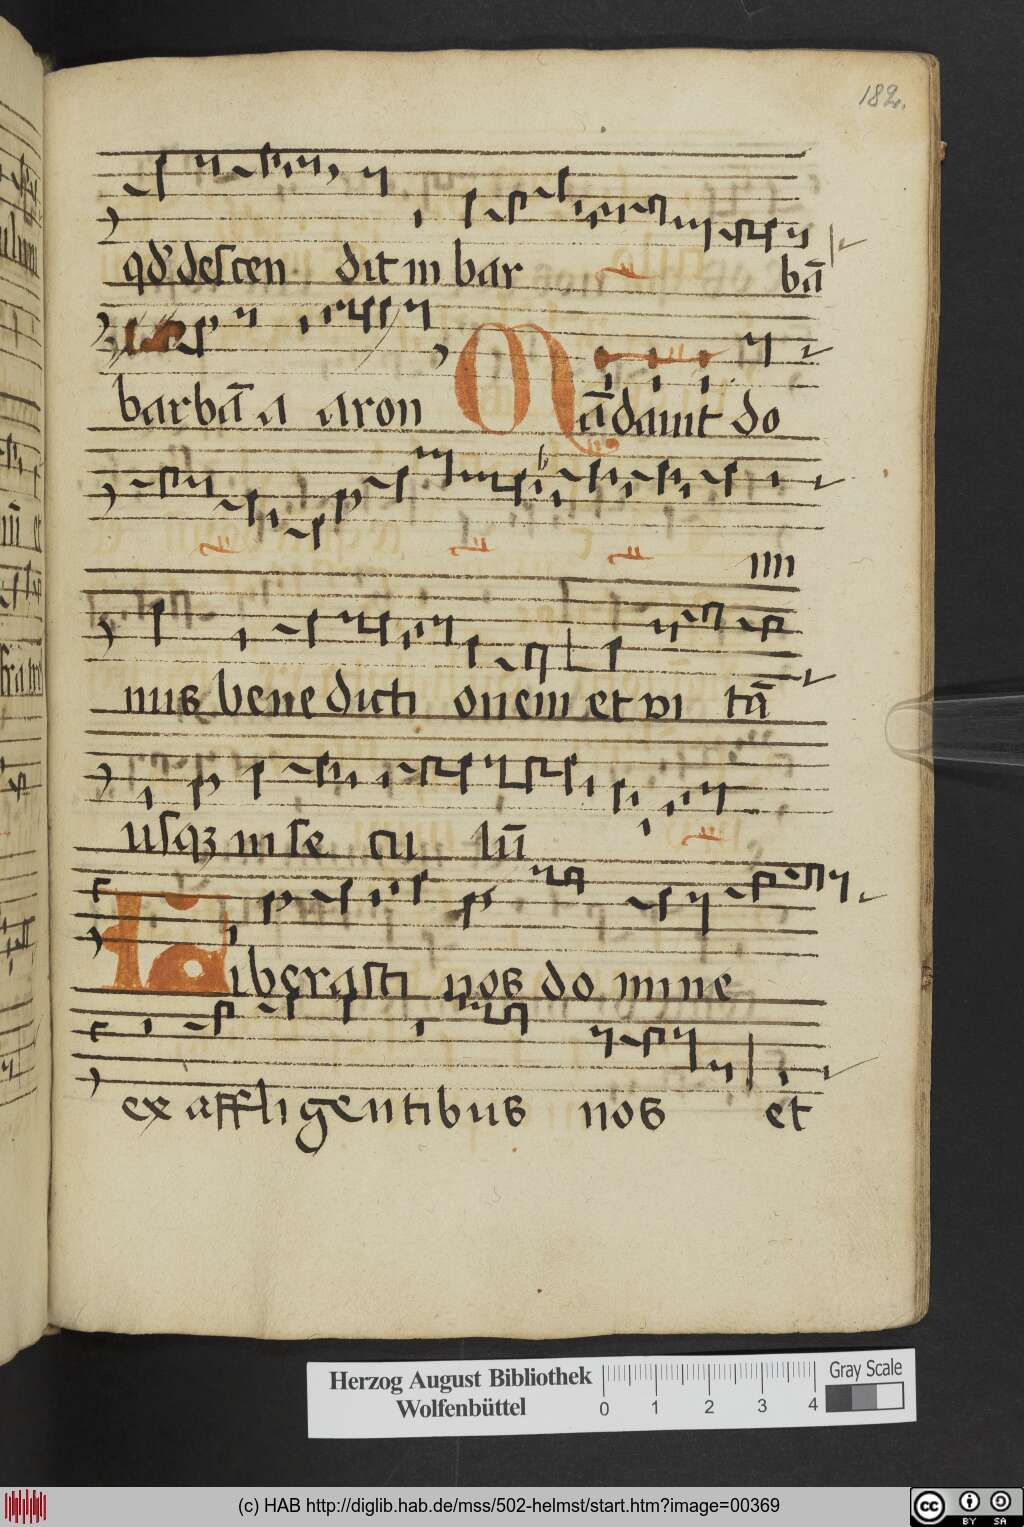 182.
qd' descen dit in bar bā
barbā a aron Mādauit do
b
IIII
nus bene dicti onem et vi tā
usqꝫ in se cu lū
Liberasti nos do mine
ex affligentibus nos et
Herzog August Bibliothek
Wolfenbüttel
0 1 2 3 4
Gray Scale
(c) HAB http://diglib.hab.de/mss/502-helmst/start.htm?image=00369
cc BY SA